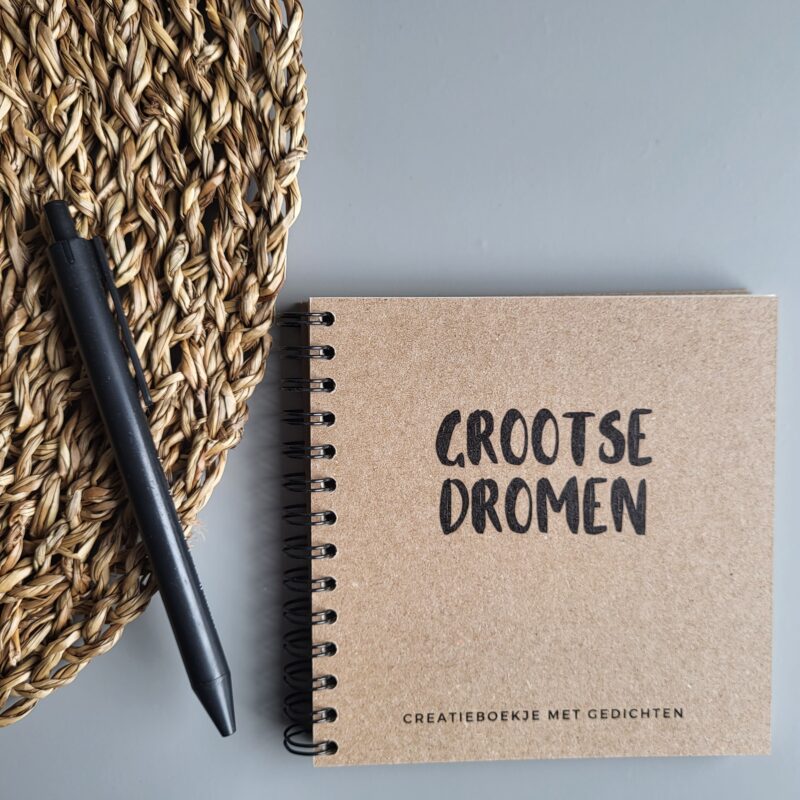 GROOTSE
DROMEN
CREATIEBOEKJE MET GEDICHTEN